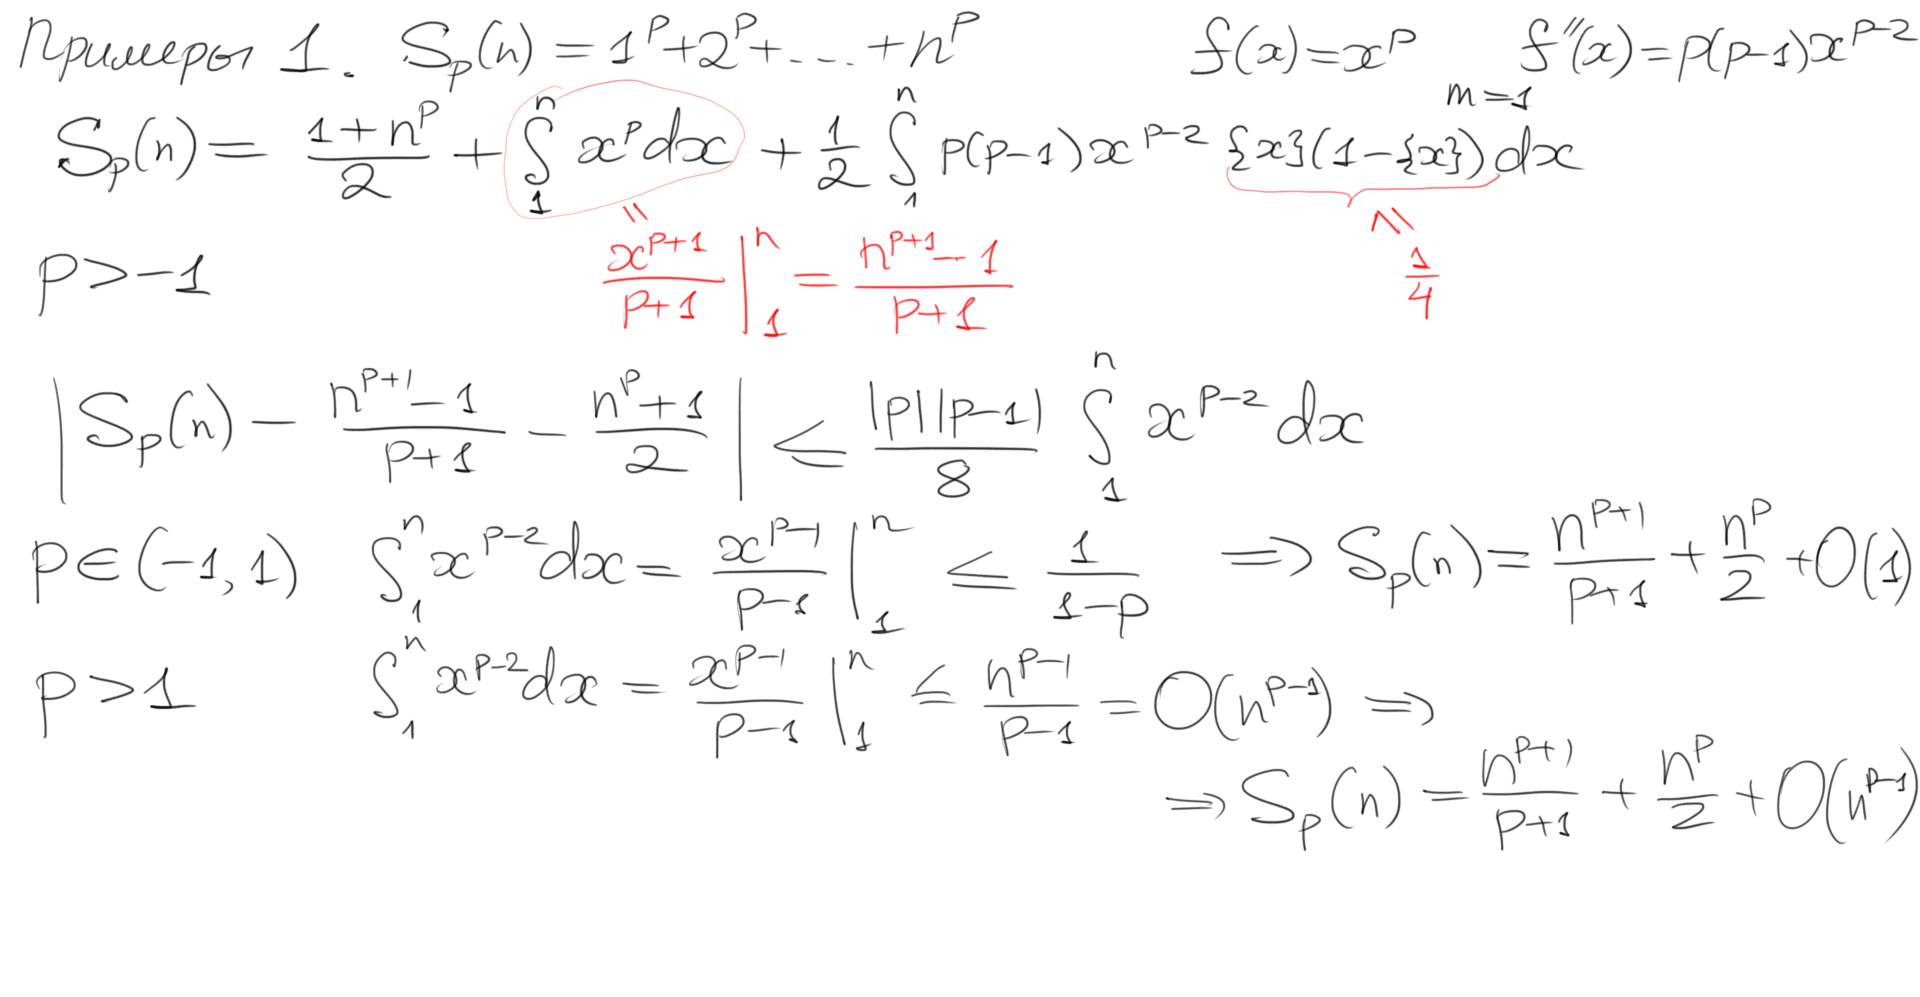 Примеры 1. $S_p(n) = 1^p + 2^p + \ldots + n^p$ $f(x) = x^p$ $f''(x) = p(p-1)x^{p-2}$
$m = 1$
$S_p(n) = \frac{1+n^p}{2} + \int_1^n x^p dx + \frac{1}{2} \int_1^n p(p-1)x^{p-2} \underbrace{\{x\}(1-\{x\})} dx$
$\|$ $\wedge\|$
$p > -1$ $\left. \frac{x^{p+1}}{p+1} \right|_1^n = \frac{n^{p+1}-1}{p+1}$ $\frac{1}{4}$
$\left| S_p(n) - \frac{n^{p+1}-1}{p+1} - \frac{n^p+1}{2} \right| \leq \frac{|p||p-1|}{8} \int_1^n x^{p-2} dx$
$p \in (-1, 1)$ $\int_1^n x^{p-2} dx = \left. \frac{x^{p-1}}{p-1} \right|_1^n \leq \frac{1}{1-p}$ $\Rightarrow S_p(n) = \frac{n^{p+1}}{p+1} + \frac{n^p}{2} + O(1)$
$p > 1$ $\int_1^n x^{p-2} dx = \left. \frac{x^{p-1}}{p-1} \right|_1^n \leq \frac{n^{p-1}}{p-1} = O(n^{p-1}) \Rightarrow$
$\Rightarrow S_p(n) = \frac{n^{p+1}}{p+1} + \frac{n^p}{2} + O(n^{p-1})$